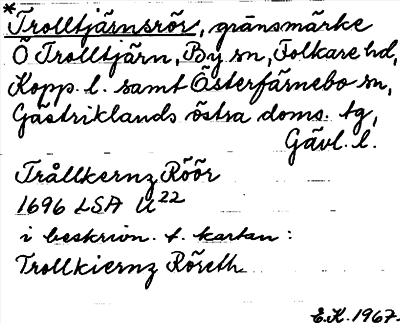 *Trolltjärnsrör, gränsmärke
Ö Trolltjärn, By sn, Folkare hd,
Kopp. l. samt Österfärnebo sn,
Gästriklands östra doms. tg,
Gävl. l.
Trållkernz Röör
1696 LSA U22
i beskrivn. t. kartan:
Trollkiernz Röreth
E.K. 1967.